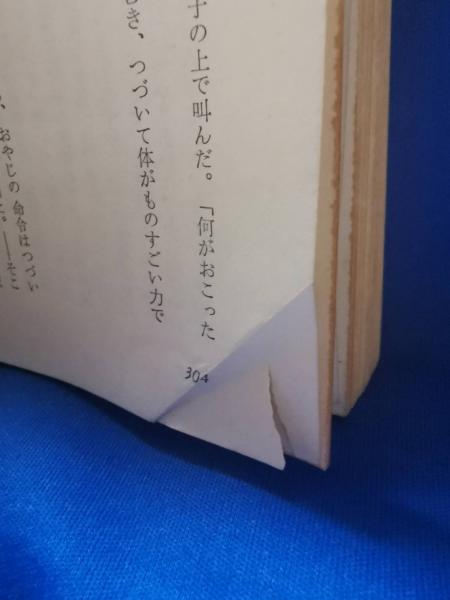 子の上で叫んだ。「何がおこった
むき、つづいて体がものすごい力で
おやじの命令はつづい
――そこ
304